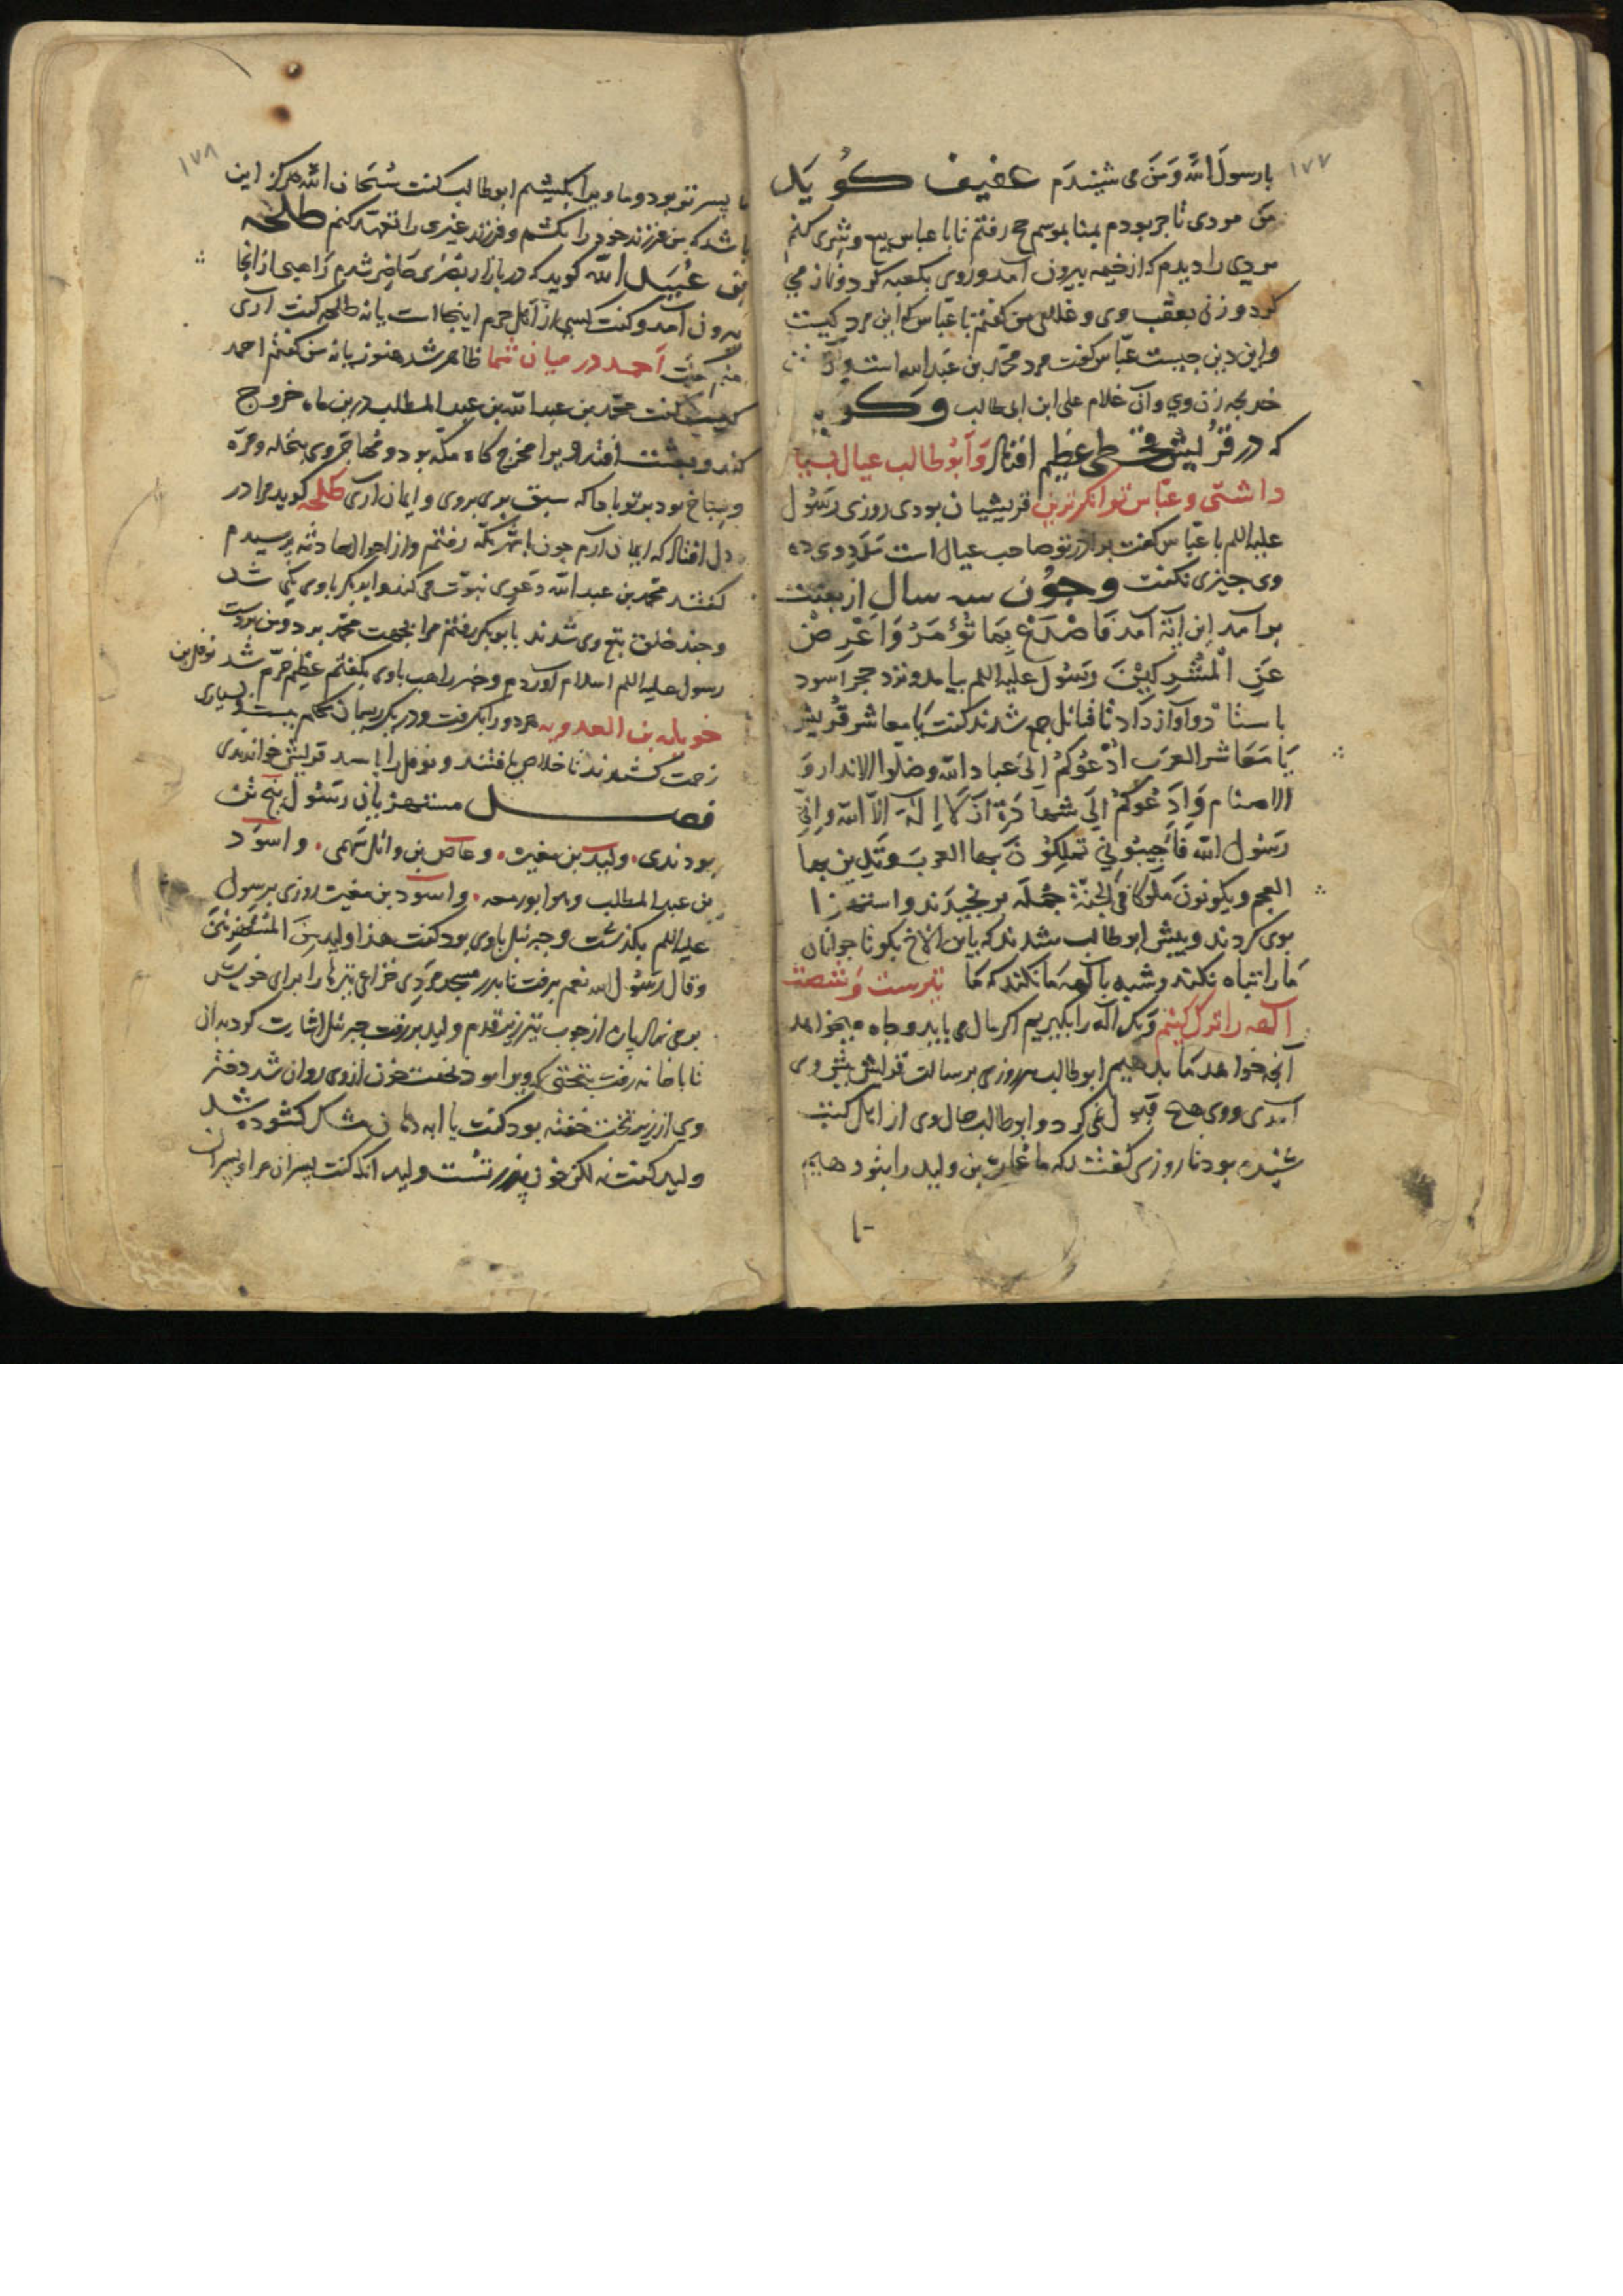 ۱۷۷
یا رسول الله و من می شنیدم عفیف کوید
من مردی تاجر بودم بمنا بموسم حج رفتم تا با عباس بیع و شری کنم
مردی را دیدم که از خیمه بیرون آمد و روی بکعبه کرد و نماز می
کرد و زنی بعقب وی و غلامی من کفتم با عباس که این مرد کیست
و این دین چیست عباس کفت مرد محمد بن عبدالله است و
خدیجه زن وی و آن غلام علی ابن ابی طالب و کو
که در قریش قحطی عظیم افتاد و ابوطالب عیال بسیا
داشتی و عباس توانکرترین قریشیان بودی روزی رسول
علیه السلم با عباس کفت برادر تو صاحب عیال است مدد وی ده
وی چیزی نکفت و چون سه سال از بعثت
برآمد این آیة آمد فَاصْدَعْ بِمَا تُؤْمَرُ وَاَعْرِضْ
عَنِ الْمُشْرِكِيْنَ رسول علیه السلم بیامد و نزد حجر اسود
باستاد و آواز داد تا قبائل جمع شدند کفت یا معاشر قریش
یا معاشر العرب ادعوکم الی عباد الله و ضلوا الانداد و
الاصنام و ادعوکم الی شهادة ان لا اله الا الله و انی
رسول الله فاجیبونی تملکون بها العرب و تدین بها
العجم ویکونون ملوکا فی الجنة جمله برنجیدند و استهزا
بوی کردند و پیش ابوطالب شدند که باین الاخ بکو تا جوانان
ما را تباه نکند و شبه بآلهه ما نکند که ما تیرست و شصت
آلهه را ترک کنیم و یک آله را بکیریم اکر مال می باید و جاه میخواهد
آنچه خواهد ما بدهیم ابوطالب هر روزی برسالت قریش پیش وی
آمدی و وی هیچ قبول نمی کرد و ابوطالب حال وی از اهل کتب
شنیده بود تا روزی کفتند که ما عمارت بن ولید را بتو دهیم
تا
۱۷۸
تا پسر تو بود و ما ویرا بکشیم ابوطالب کفت سبحان الله هرکز این
باشد که من فرزند خود را بکشم و فرزند غیری را تعهد کنم طلحه
بن عبید الله کوید که در بازار بصری حاضر شدم راهبی از انجا
بیرون آمد و کفت کسی از اهل حرم اینجا است یا نه طلحه کفت آری
منم کفت احمد در میان شما ظاهر شد هنوز یا نه من کفتم احمد
کیست کفت محمد بن عبد الله بن عبد المطلب درین ماه خروج
کند و مخرج کاه مکه بود و مهاجر وی بنخله و حره
و سباخ بود بر تو باد که سبق بری بروی و ایمان آری طلحه کوید مرا در
دل افتاد که ایمان آرم چون بشهر مکه رفتم و از احوال حادثه پرسیدم
کفتند محمد بن عبد الله دعوی نبوت می کند و ابوبکر باوی یکی شد
و چند خلق تبع وی شدند با بوبکر رفتم مرا بجهت محمد برد و من بر دست
رسول علیه السلم اسلام آوردم و خبر راهب باوی بکفتم عظیم خرم شد نوفل بن
خویلد بن العدویه هر دو را بکرفت و در یک ریسمان محکم ببست بسیاری
زحمت کشیدند تا خلاص یافتند و نوفل را اسد قریش خواندندی
فصل مستهزیان رسول پنج تن
بودندی ولید بن مغیرة و عاص بن وائل سهمی و اسود
بن عبد المطلب و هو ابو زمعه و اسود بن مغیث روزی برسول
علیه السلم بکذشت و جبرئیل باوی بود کفت هذا ولید من المستهزئین
وقال رسول الله نعم برفت تا بدر مسجد مردی خزاعی تیرها را برای خویش
خانه رفت بتختی که ویرا بود بخفت خون از وی روان شد دختر
وی از زیر تخت خفته بود کفت یا ابه دهان مشک کشوده شد
ولید کفت نه لکن خون پدر تست ولید آنکه کفت پسران مرا و پسران